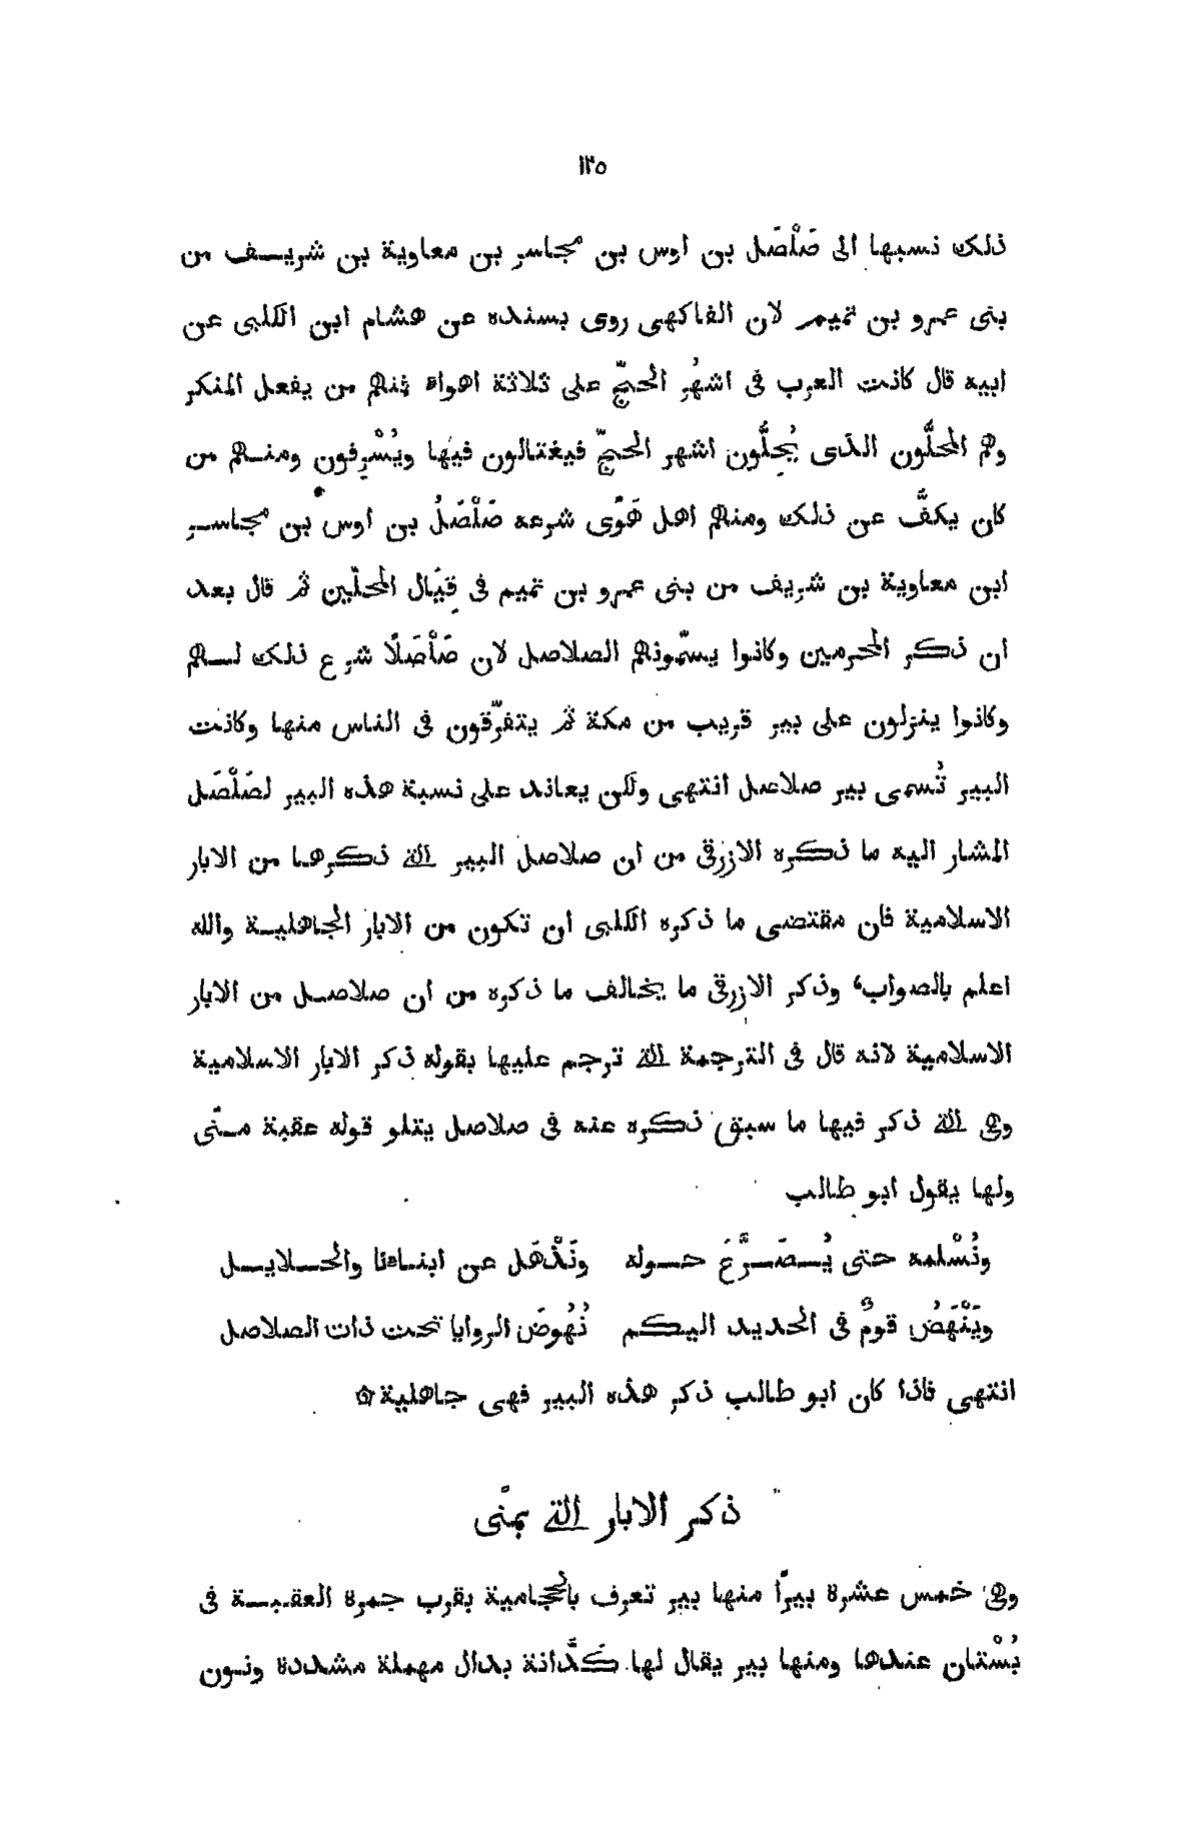 ١٢٥
ذلك نسبها الى صَلْصَل بن اوس بن مجاسر بن معاوية بن شريف من
بنى عمرو بن تميم لان الفاكهى روى بسنده عن هشام ابن الكلبى عن
ابيه قال كانت العرب فى اشهُر الحجّ على ثلاثة اهواء فمنهم من يفعل المنكر
وهم المحلّون الذى يُحِلُّون اشهر الحجّ فيغتالون فيها ويُسْرِفون ومنهم من
كان يكفُّ عن ذلك ومنهم اهل هَوًى شرعه صَلْصَلُ بن اوس بن مجاسر
ابن معاوية بن شريف من بنى عمرو بن تميم فى قِتَال المحلّين ثم قال بعد
ان ذكر المحرمين وكانوا يسمّونهم الصلاصل لان صَلْصَلًا شرع ذلك لهم
وكانوا ينزلون على بير قريب من مكة ثم يتفرّقون فى الناس منها وكانت
البير تُسمى بير صلاصل انتهى ولكن يعاند على نسبة هذه البير لصَلْصَل
المشار اليه ما ذكره الازرقى من ان صلاصل البير التى ذكرها من الابار
الاسلامية فان مقتضى ما ذكره الكلبى ان تكون من الابار الجاهلية والله
اعلم بالصواب، وذكر الازرقى ما يخالف ما ذكره من ان صلاصل من الابار
الاسلامية لانه قال فى الترجمة التى ترجم عليها بقوله ذكر الابار الاسلامية
وهى التى ذكر فيها ما سبق ذكره عنه فى صلاصل يتلو قوله عقبة منًى
ولها يقول ابو طالب
ونُسْلمه حتى يُصَرَّعَ حوله ونَذْهَل عن ابناءنا والحلايل
ويَنْهَضُ قومٌ فى الحديد اليكم نُهُوضَ الروايا تحت ذات الصلاصل
انتهى فاذا كان ابو طالب ذكر هذه البير فهى جاهلية ۞
ذكر الابار التى بمنًى
وهى خمس عشرة بيرًا منها بير تعرف بالحجامية بقرب جمرة العقبة فى
بُسْتان عندها ومنها بير يقال لها كَدَّانة بدال مهملة مشددة ونون